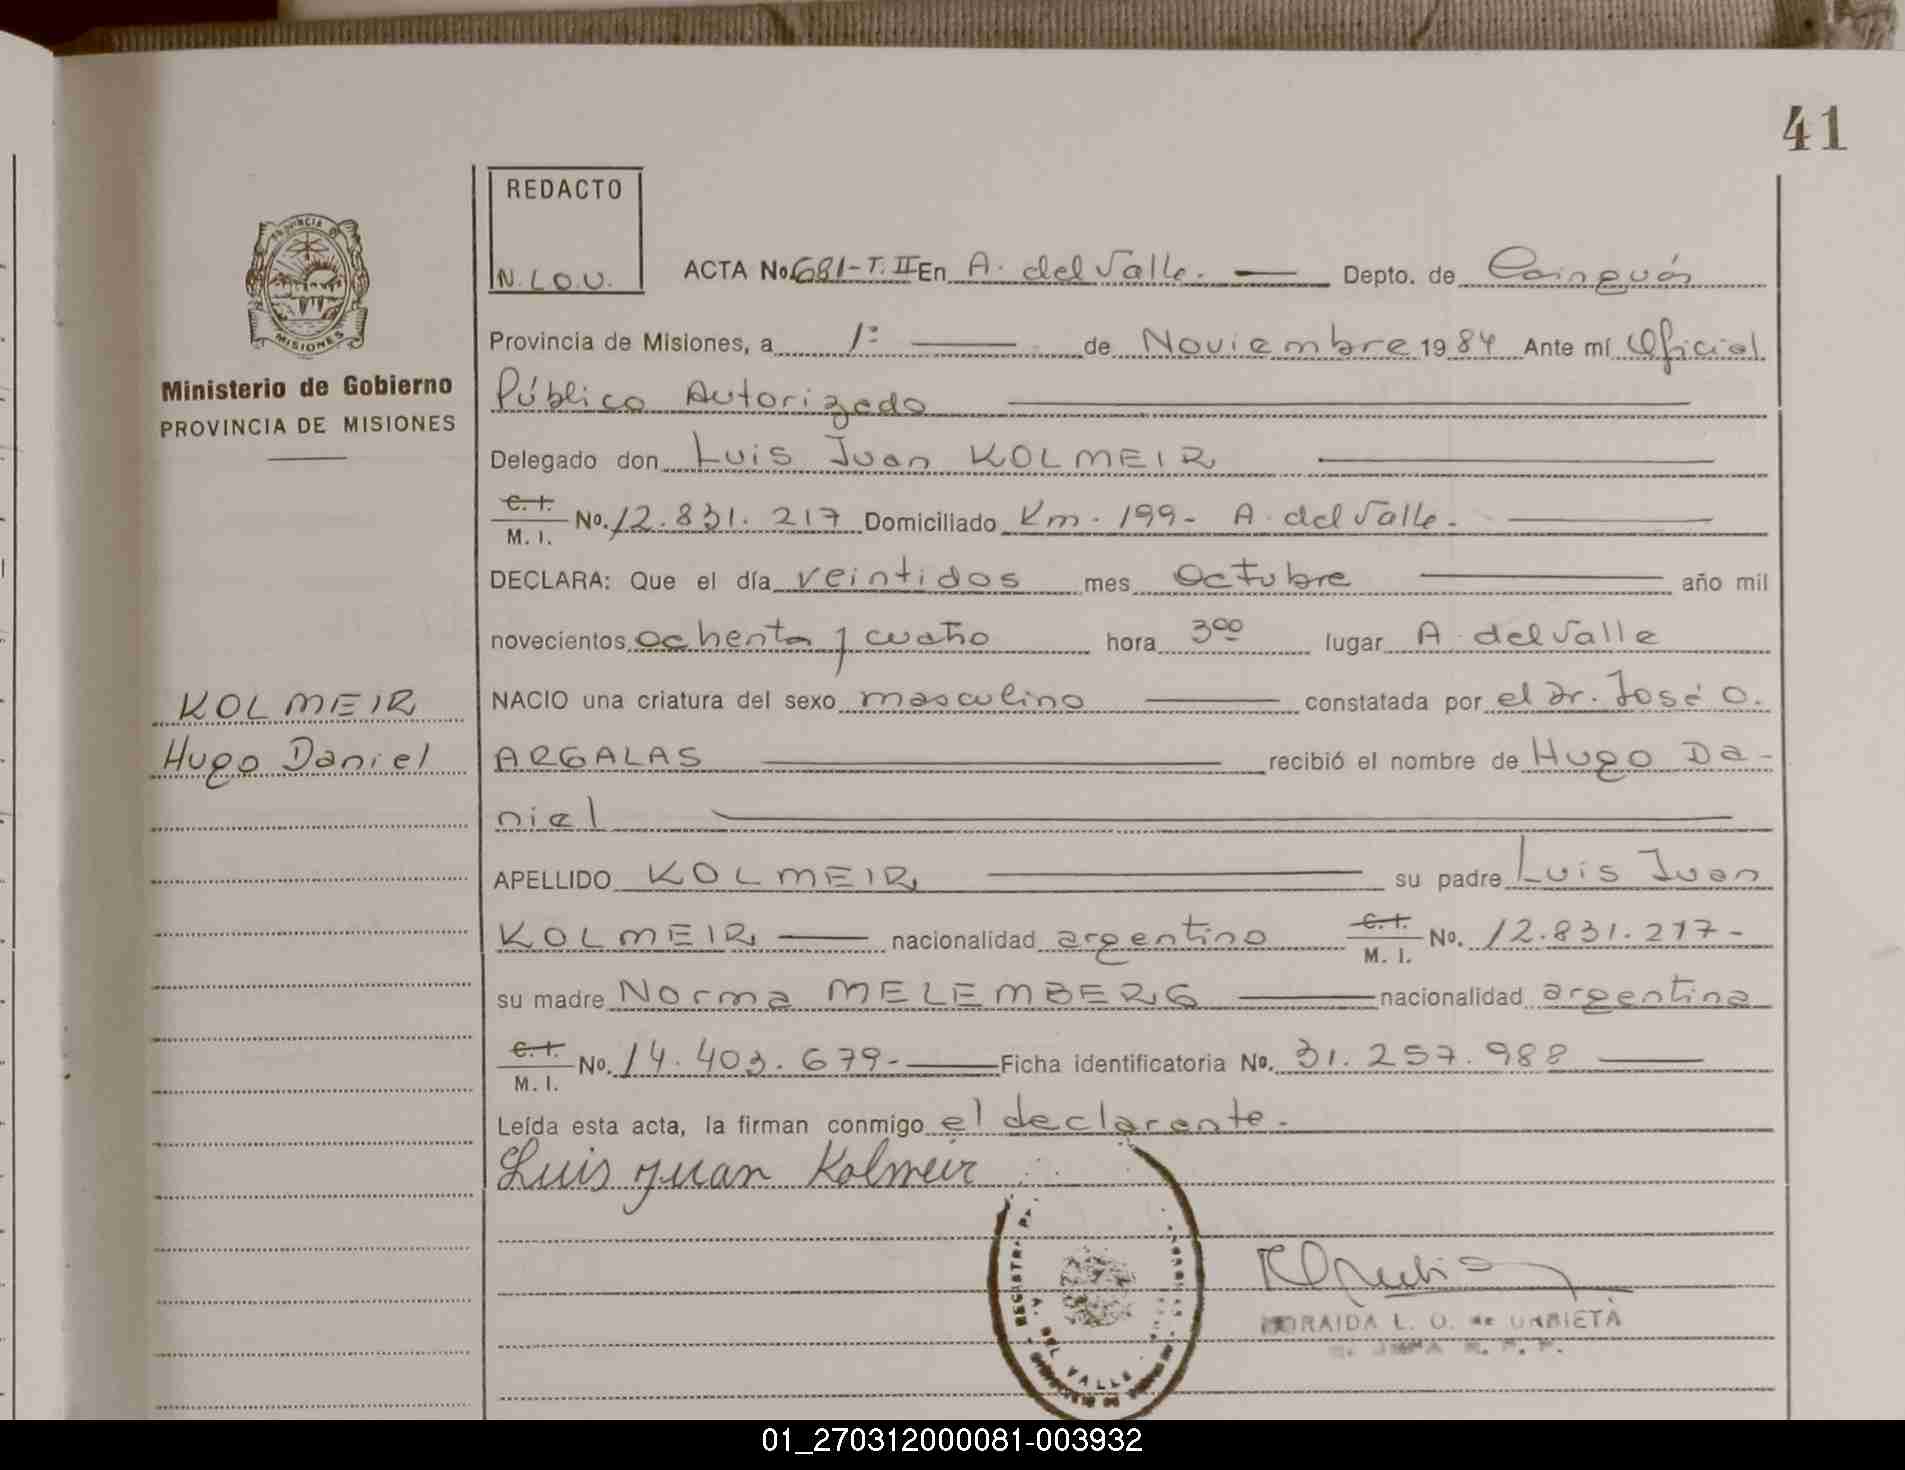 41
REDACTO
N.L.O.U.
ACTA No. 681-T.II En A. del Valle. Depto. de Cainguás
PROVINCIA DE
MISIONES
Ministerio de Gobierno
PROVINCIA DE MISIONES
Provincia de Misiones, a 1º de Noviembre 1984 Ante mí Oficial
Público Autorizado
Delegado don Luis Juan KOLMEIR
C. I.
M. I. No. 12.831.217 Domiciliado Km. 199- A. del Valle.
DECLARA: Que el día veintidos mes Octubre año mil
novecientos ochenta y cuatro hora 3⁰⁰ lugar A. del Valle
KOLMEIR
Hugo Daniel
NACIO una criatura del sexo masculino constatada por el Dr. José O.
ARGALAS recibió el nombre de Hugo Da-
niel
APELLIDO KOLMEIR su padre Luis Juan
KOLMEIR nacionalidad argentino C. I.
M. I. No. 12.831.217-
su madre Norma MELEMBERG nacionalidad argentina
C. I.
M. I. No. 14.403.679- Ficha identificatoria No. 31.257.988
Leída esta acta, la firman conmigo el declarante.
Luis Juan Kolmeir
DEL VALLE
L. O. de URBIETA
01_270312000081-003932